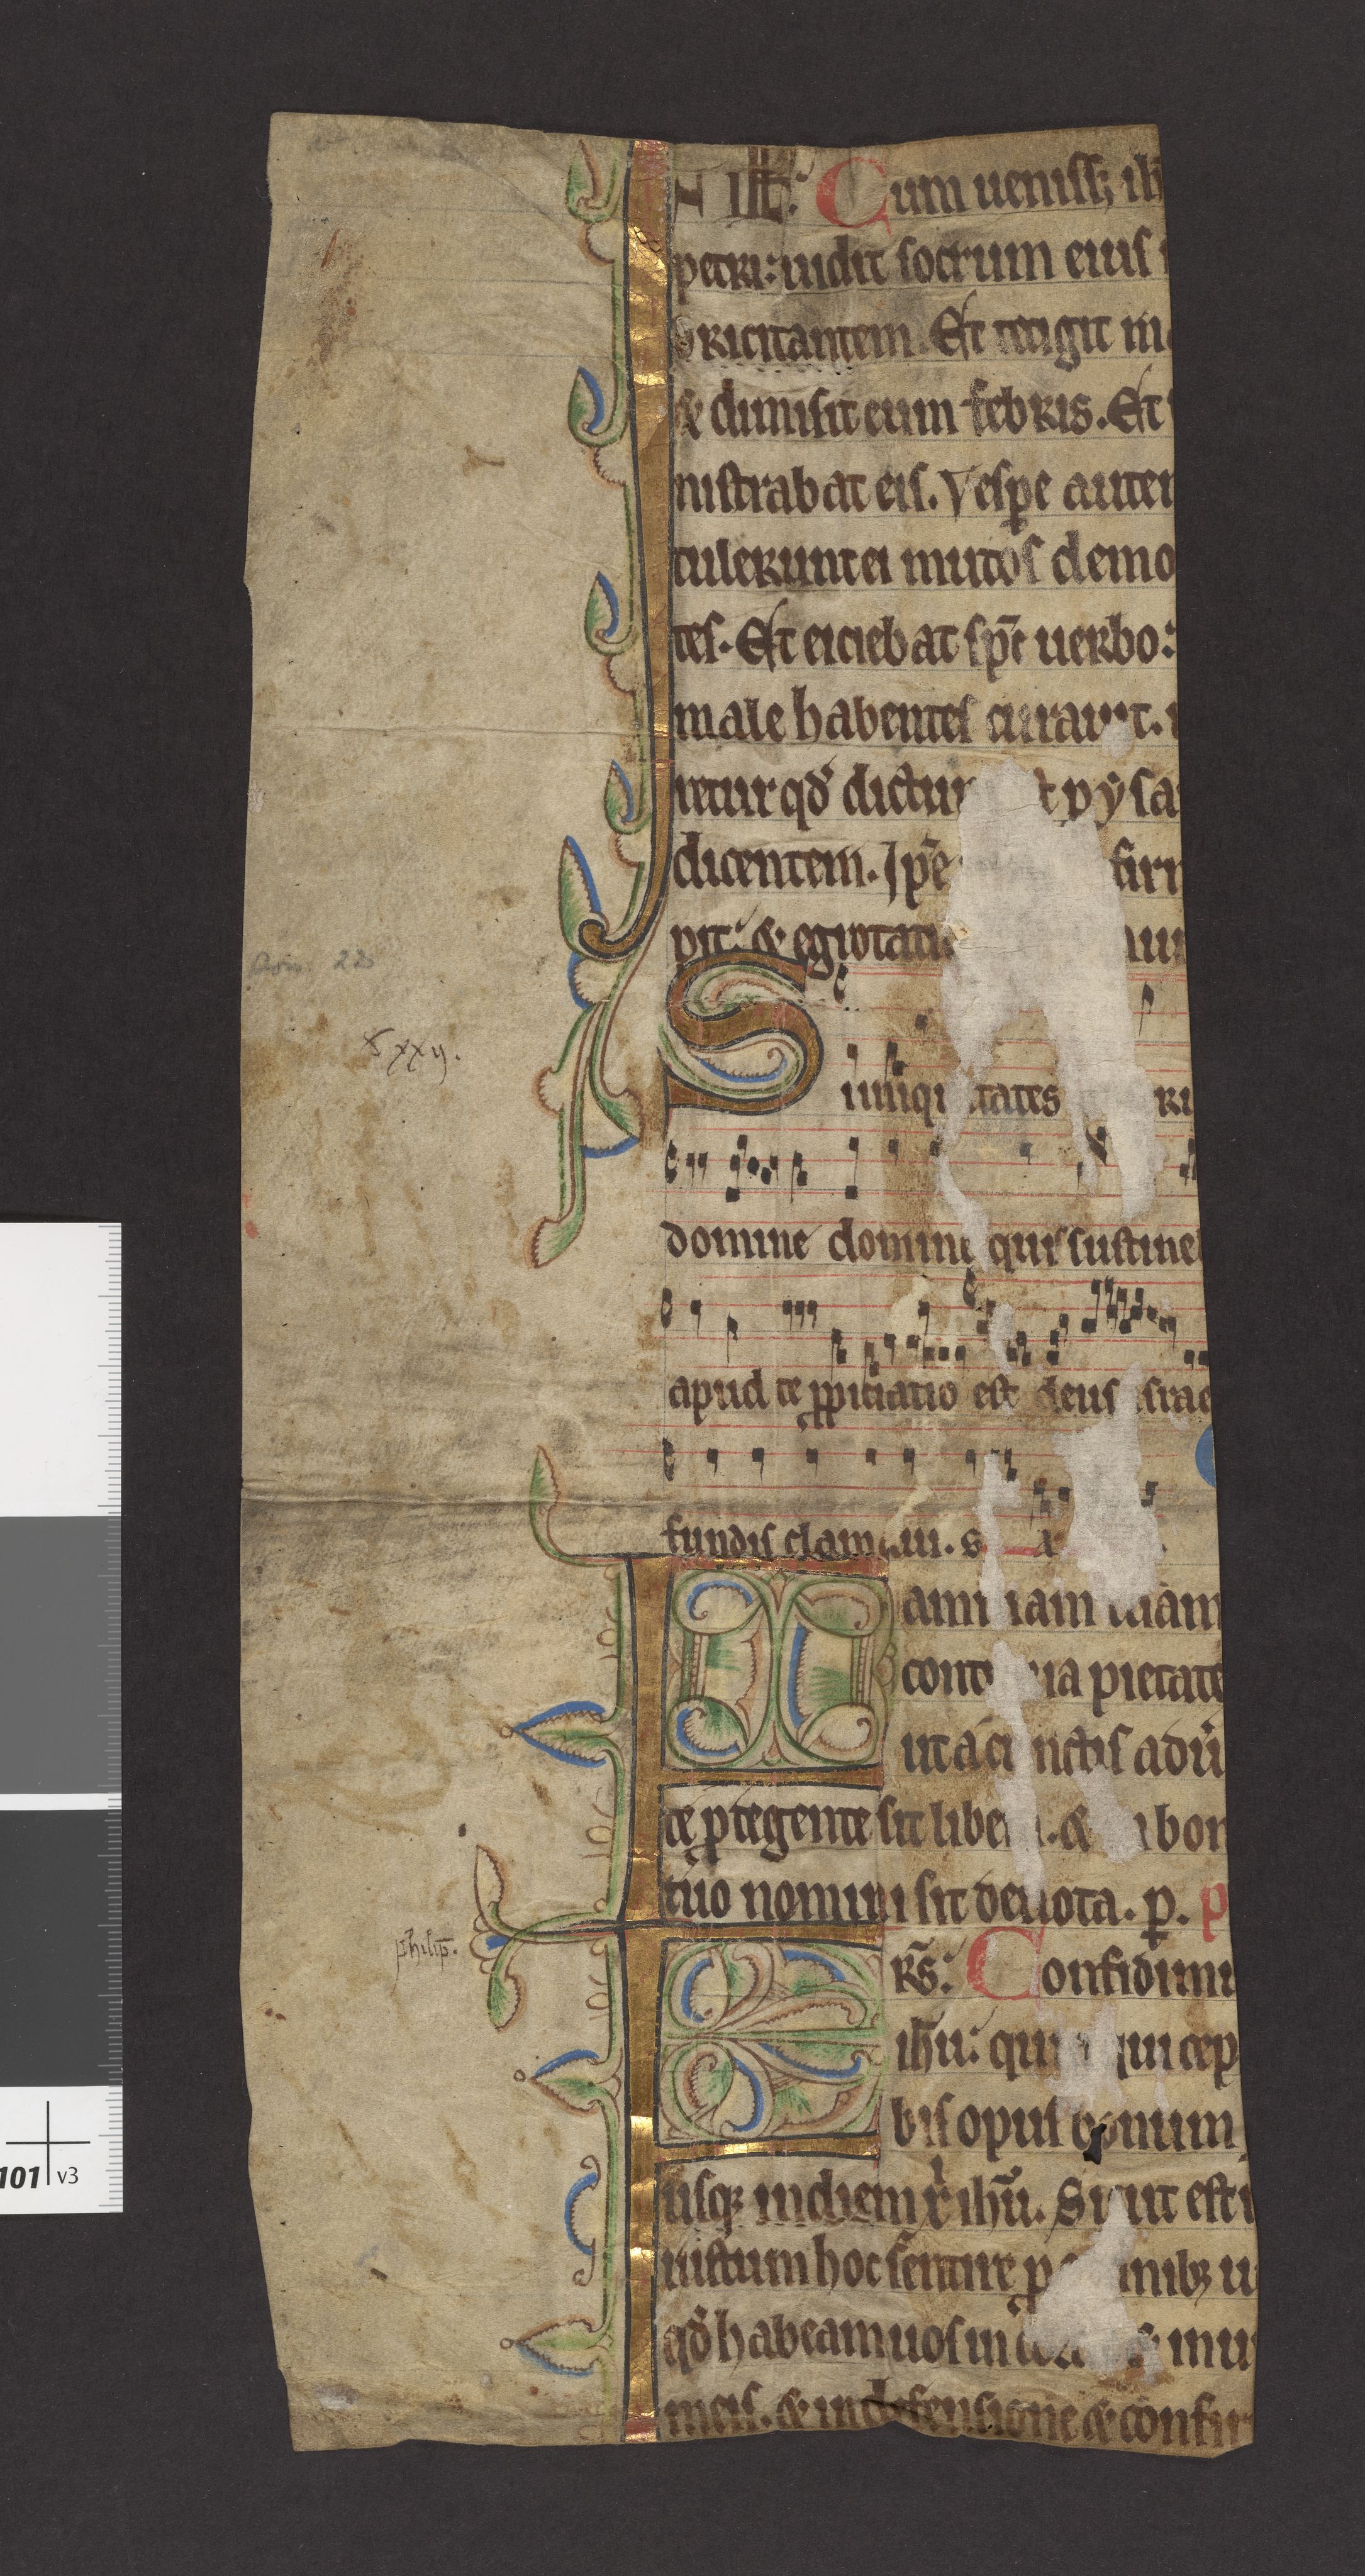 N Illt: Cum uenisset ih
petri: uidit socrum eius i
bricitantem. Et tetigit m
& dimisit eum febris. Et
nistrabat eis. Vespe autem
tulerunt ei mutos demo
tes. Et eiciebat sp̄c uerbo:
male habentes curauit.
retur qd̄ dictum p ysa
dicentem. Ipe firm
pit: & egrotati
Dom. 22
xxij.
S iiniqitates ri
domine domine quis sustine
apud te ppiciatio est deus israe
fundis clamaui. s
F amiliam tuam
continua pietate
ut a cunctis adū
te ptegente sit libera. & bon
tuo nomini sit deuota. p. P
philip̄.
F Rs̄: Confidimu
ihū: qui cep
bis opus bonum
usq; in diem xi ihū. Sicut est i
iustum hoc sentire p omnibz u
qd̄ habeam uos in
meis. & in defensione & confir
101 v3